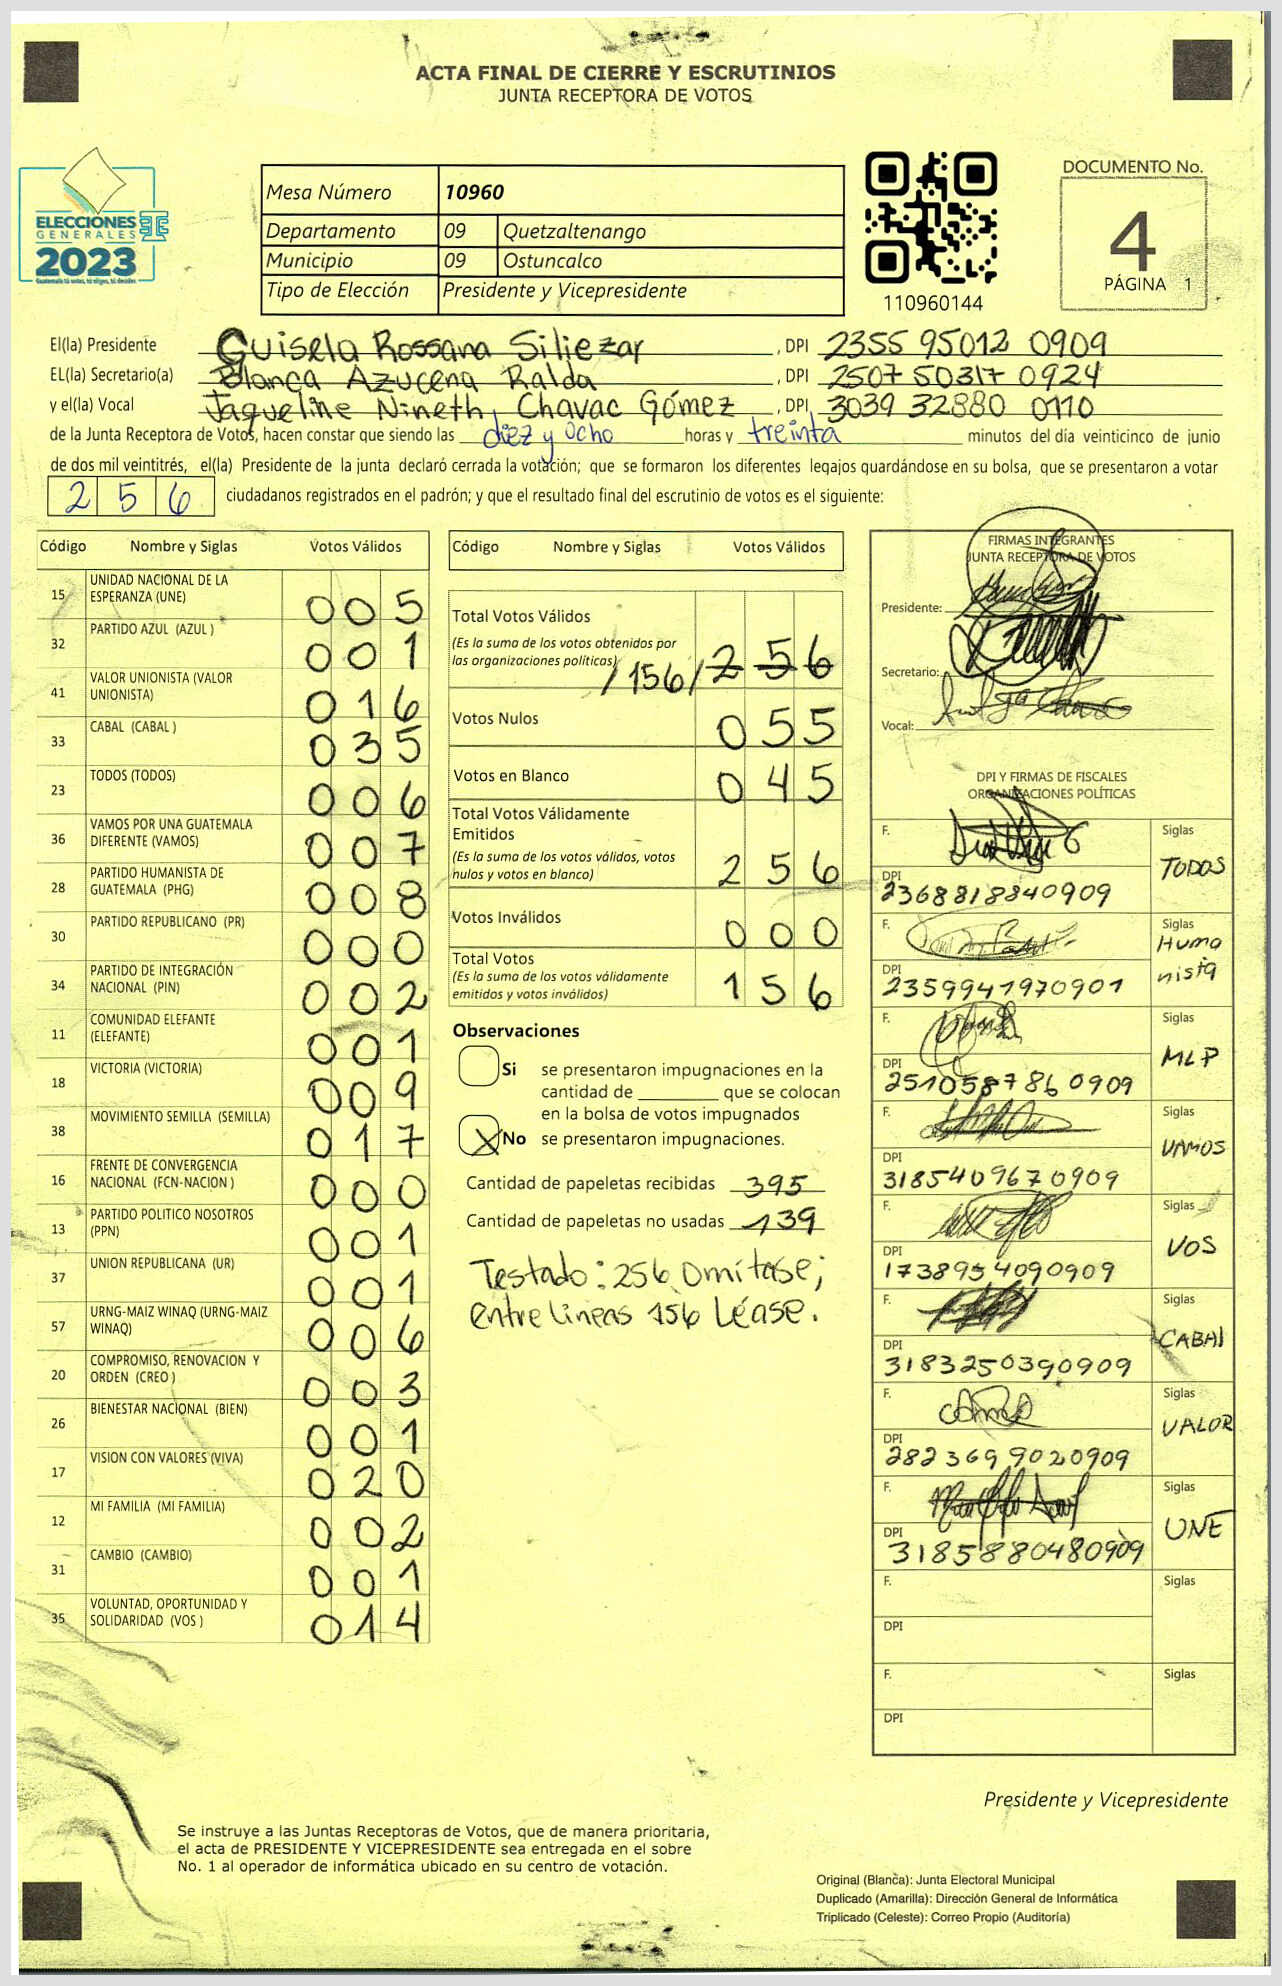 ACTA FINAL DE CIERRE Y ESCRUTINIOS
JUNTA RECEPTORA DE VOTOS
ELECCIONES
GENERALES
2023
Mesa Número 10960
Departamento 09 Quetzaltenango
Municipio 09 Ostuncalco
Tipo de Elección Presidente y Vicepresidente
110960144
DOCUMENTO No.
4
PÁGINA 1
El(la) Presidente Guisela Rossana Siliezar , DPI 2355 95012 0909
EL(la) Secretario(a) Blanca Azucena Ralda , DPI 2507 50317 0924
y el(la) Vocal Jaqueline Nineth, Chavac Gómez , DPI 3039 32880 0110
de la Junta Receptora de Votos, hacen constar que siendo las diez y ocho horas y treinta minutos del día veinticinco de junio
de dos mil veintitrés, el(la) Presidente de la junta declaró cerrada la votación; que se formaron los diferentes legajos guardándose en su bolsa, que se presentaron a votar
256 ciudadanos registrados en el padrón; y que el resultado final del escrutinio de votos es el siguiente:
Código Nombre y Siglas Votos Válidos
15 UNIDAD NACIONAL DE LA ESPERANZA (UNE) 005
32 PARTIDO AZUL (AZUL ) 001
41 VALOR UNIONISTA (VALOR UNIONISTA) 016
33 CABAL (CABAL ) 035
23 TODOS (TODOS) 006
36 VAMOS POR UNA GUATEMALA DIFERENTE (VAMOS) 007
28 PARTIDO HUMANISTA DE GUATEMALA (PHG) 008
30 PARTIDO REPUBLICANO (PR) 000
34 PARTIDO DE INTEGRACIÓN NACIONAL (PIN) 002
11 COMUNIDAD ELEFANTE (ELEFANTE) 001
18 VICTORIA (VICTORIA) 009
38 MOVIMIENTO SEMILLA (SEMILLA) 017
16 FRENTE DE CONVERGENCIA NACIONAL (FCN-NACION ) 000
13 PARTIDO POLITICO NOSOTROS (PPN) 001
37 UNION REPUBLICANA (UR) 001
57 URNG-MAIZ WINAQ (URNG-MAIZ WINAQ) 006
20 COMPROMISO, RENOVACION Y ORDEN (CREO ) 003
26 BIENESTAR NACIONAL (BIEN) 001
17 VISION CON VALORES (VIVA) 020
12 MI FAMILIA (MI FAMILIA) 002
31 CAMBIO (CAMBIO) 001
35 VOLUNTAD, OPORTUNIDAD Y SOLIDARIDAD (VOS ) 014
Código Nombre y Siglas Votos Válidos
Total Votos Válidos
(Es la suma de los votos obtenidos por
las organizaciones políticas) /156/ 256
Votos Nulos 055
Votos en Blanco 045
Total Votos Válidamente
Emitidos
(Es la suma de los votos válidos, votos
nulos y votos en blanco) 256
Votos Inválidos 000
Total Votos
(Es la suma de los votos válidamente
emitidos y votos inválidos) 156
Observaciones
Si se presentaron impugnaciones en la
cantidad de ________ que se colocan
en la bolsa de votos impugnados
X No se presentaron impugnaciones.
Cantidad de papeletas recibidas 395
Cantidad de papeletas no usadas 139
Testado: 256 Omitase;
entre líneas 156 Léase.
FIRMAS INTEGRANTES
JUNTA RECEPTORA DE VOTOS
Presidente:
Secretario:
Vocal:
DPI Y FIRMAS DE FISCALES
ORGANIZACIONES POLÍTICAS
F. Siglas TODOS
DPI 2368818840909
F. Siglas Humanista
DPI 2359941970901
F. Siglas MLP
DPI 2510587860909
F. Siglas VAMOS
DPI 3185409670909
F. Siglas VOS
DPI 1738954090909
F. Siglas CABAl
DPI 3183250390909
F. Siglas VALOR
DPI 2823699020909
F. Siglas UNE
DPI 3185880480909
F. Siglas
DPI
F. Siglas
DPI
Presidente y Vicepresidente
Se instruye a las Juntas Receptoras de Votos, que de manera prioritaria,
el acta de PRESIDENTE Y VICEPRESIDENTE sea entregada en el sobre
No. 1 al operador de informática ubicado en su centro de votación.
Original (Blanca): Junta Electoral Municipal
Duplicado (Amarilla): Dirección General de Informática
Triplicado (Celeste): Correo Propio (Auditoría)